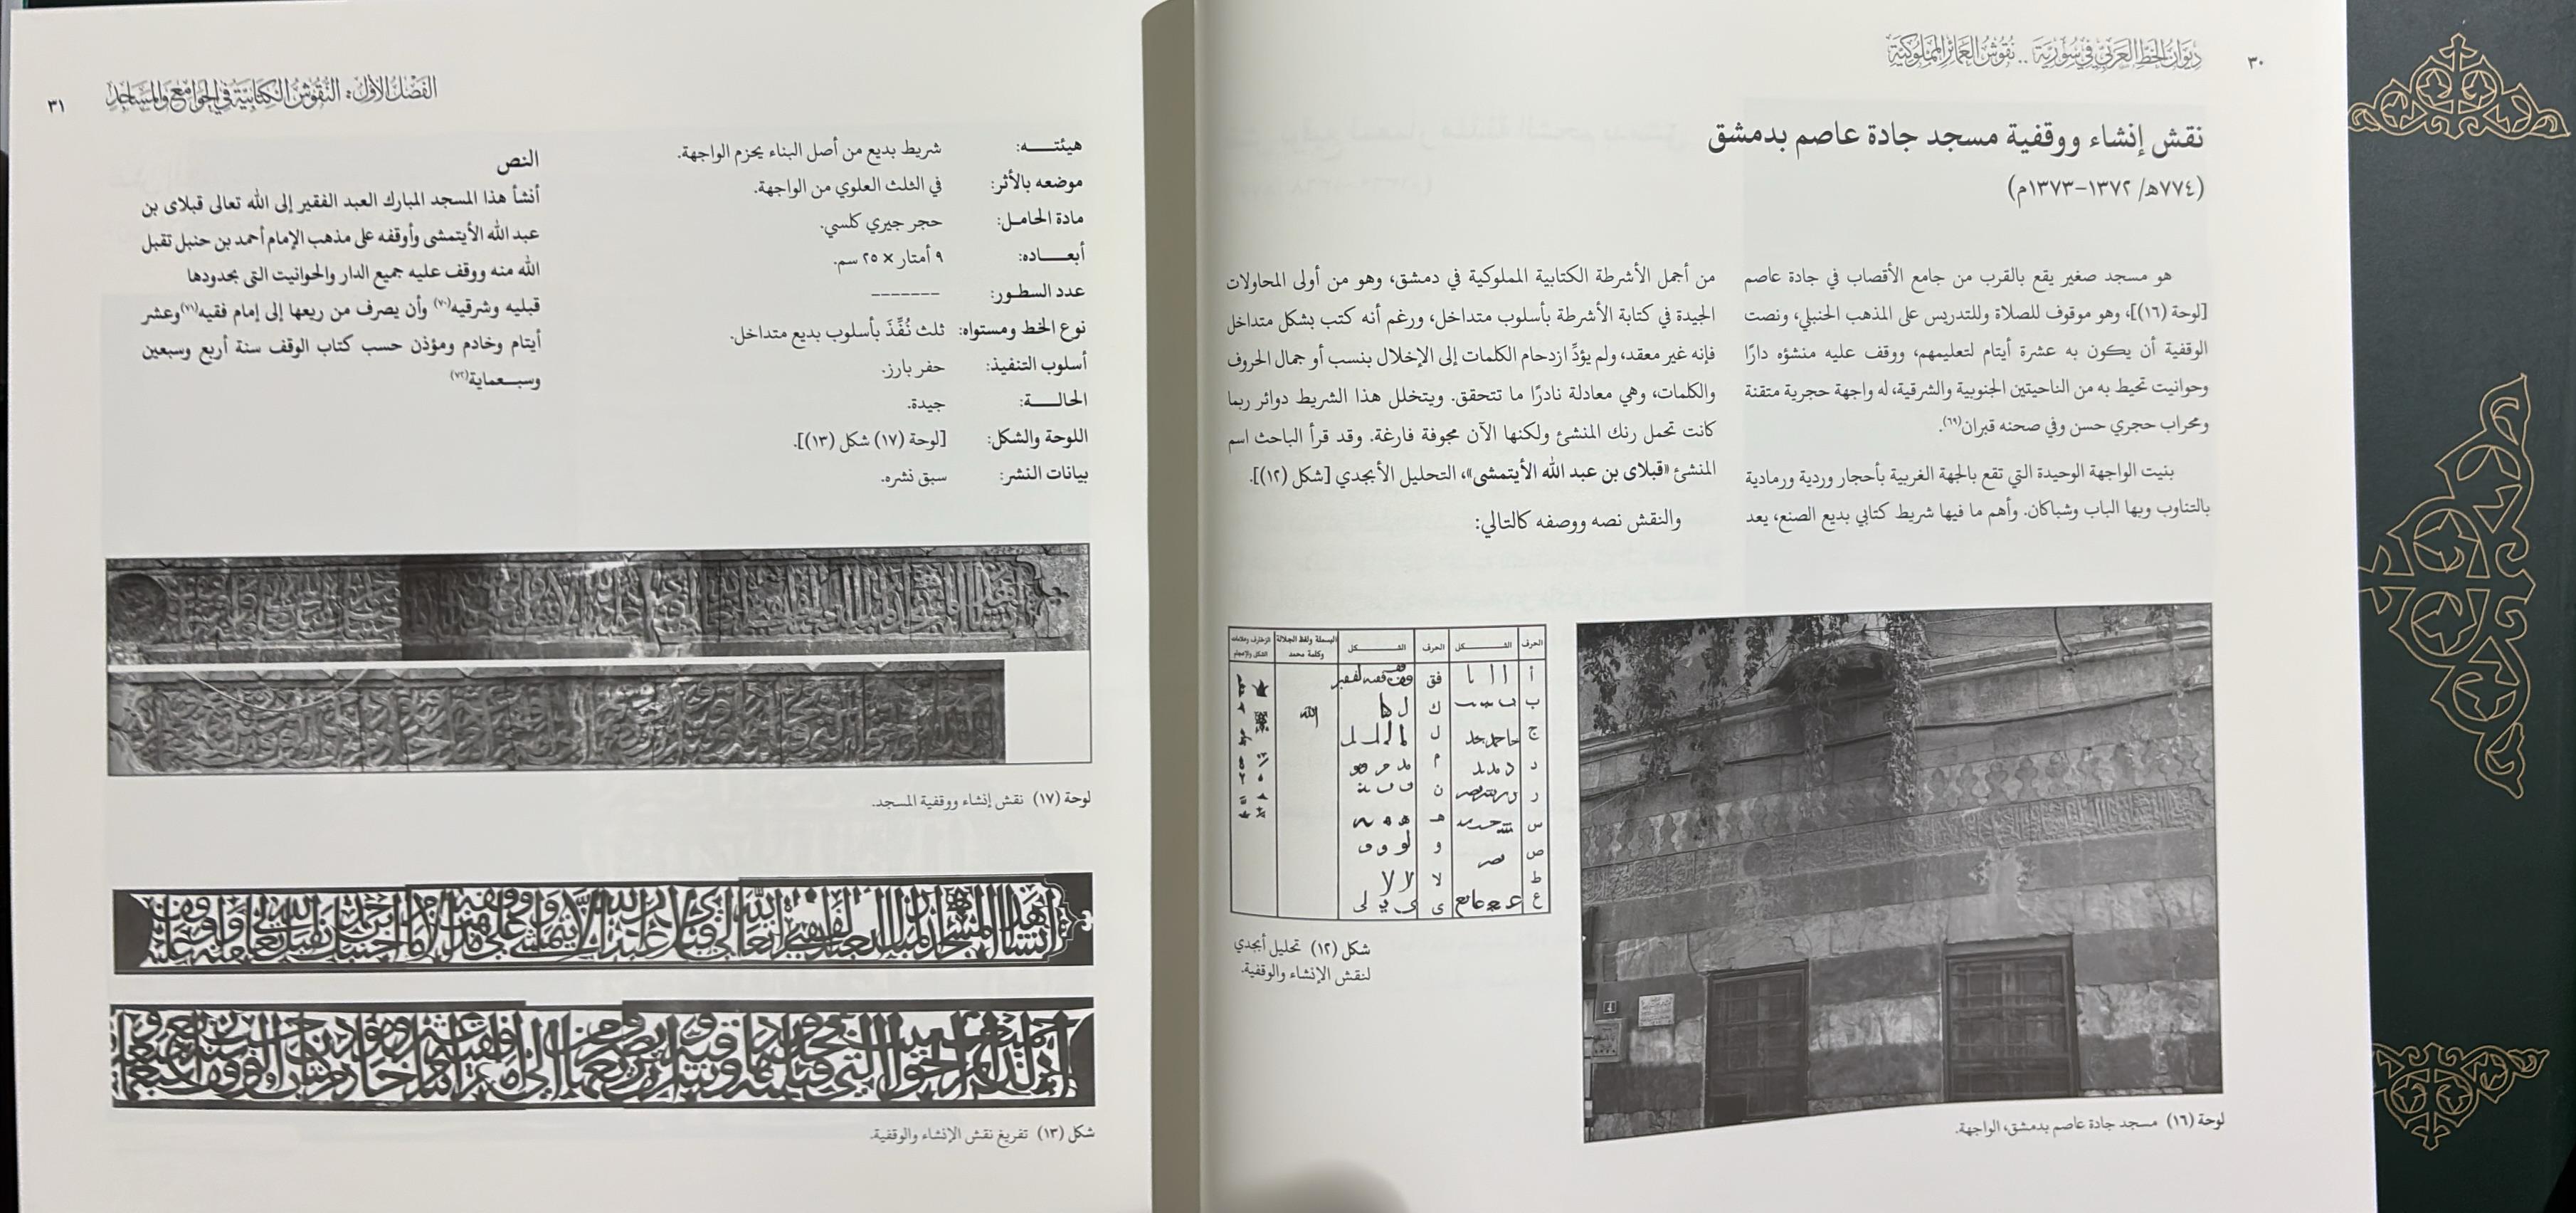 ٣٠
ديوان الخط العربي في سورية .. نقوش العمائر المملوكية
نقش إنشاء ووقفية مسجد جادة عاصم بدمشق
(٧٧٤هـ/ ١٣٧٢-١٣٧٣م)
هو مسجد صغير يقع بالقرب من جامع الأقصاب في جادة عاصم
[لوحة (١٦)]، وهو موقوف للصلاة وللتدريس على المذهب الحنبلي، ونصت
الوقفية أن يكون به عشرة أيتام لتعليمهم، ووقف عليه منشؤه دارًا
وحوانيت تحيط به من الناحيتين الجنوبية والشرقية، له واجهة حجرية متقنة
ومحراب حجري حسن وفي صحنه قبران(٦٩).
بنيت الواجهة الوحيدة التي تقع بالجهة الغربية بأحجار وردية ورمادية
بالتناوب وبها الباب وشباكان. وأهم ما فيها شريط كتابي بديع الصنع، يعد
من أجمل الأشرطة الكتابية المملوكية في دمشق، وهو من أولى المحاولات
الجيدة في كتابة الأشرطة بأسلوب متداخل، ورغم أنه كتب بشكل متداخل
فإنه غير معقد، ولم يؤدِّ ازدحام الكلمات إلى الإخلال بنسب أو جمال الحروف
والكلمات، وهي معادلة نادرًا ما تتحقق. ويتخلل هذا الشريط دوائر ربما
كانت تحمل رنك المنشئ ولكنها الآن مجوفة فارغة. وقد قرأ الباحث اسم
المنشئ «قبلاى بن عبد الله الأيتمشى»، التحليل الأبجدي [شكل (١٢)].
والنقش نصه ووصفه كالتالي:
الحرف الشكل الحرف الشكل البسملة ولفظ الجلالة وكلمة محمد الزخارف وعلامات الشكل والإعجام
أ فق
ب ك
ج ل
د م
ر ن
س هـ
ص و
ط لا
ع ى
الله
شكل (١٢) تحليل أبجدي
لنقش الإنشاء والوقفية.
لوحة (١٦) مسجد جادة عاصم بدمشق، الواجهة.
الفصل الأول: النقوش الكتابية في الجوامع والمساجد
٣١
هيئتــــه: شريط بديع من أصل البناء يحزم الواجهة.
موضعه بالأثر: في الثلث العلوي من الواجهة.
مادة الحامـل: حجر جيري كلسي.
أبعـــاده: ٩ أمتار × ٢٥ سم.
عدد السطـور: -------
نوع الخط ومستواه: ثلث نُفِّذَ بأسلوب بديع متداخل.
أسلوب التنفيذ: حفر بارز.
الحالـــــة: جيدة.
اللوحة والشكل: [لوحة (١٧) شكل (١٣)].
بيانات النشر: سبق نشره.
النص
أنشأ هذا المسجد المبارك العبد الفقير إلى الله تعالى قبلاى بن
عبد الله الأيتمشى وأوقفه على مذهب الإمام أحمد بن حنبل تقبل
الله منه ووقف عليه جميع الدار والحوانيت التى بحدودها
قبليه وشرقيه(٧٠) وأن يصرف من ريعها إلى إمام فقيه(٧١)وعشر
أيتام وخادم ومؤذن حسب كتاب الوقف سنة أربع وسبعين
وسبـــعماية(٧٢)
لوحة (١٧) نقش إنشاء ووقفية المسجد.
شكل (١٣) تفريغ نقش الإنشاء والوقفية.